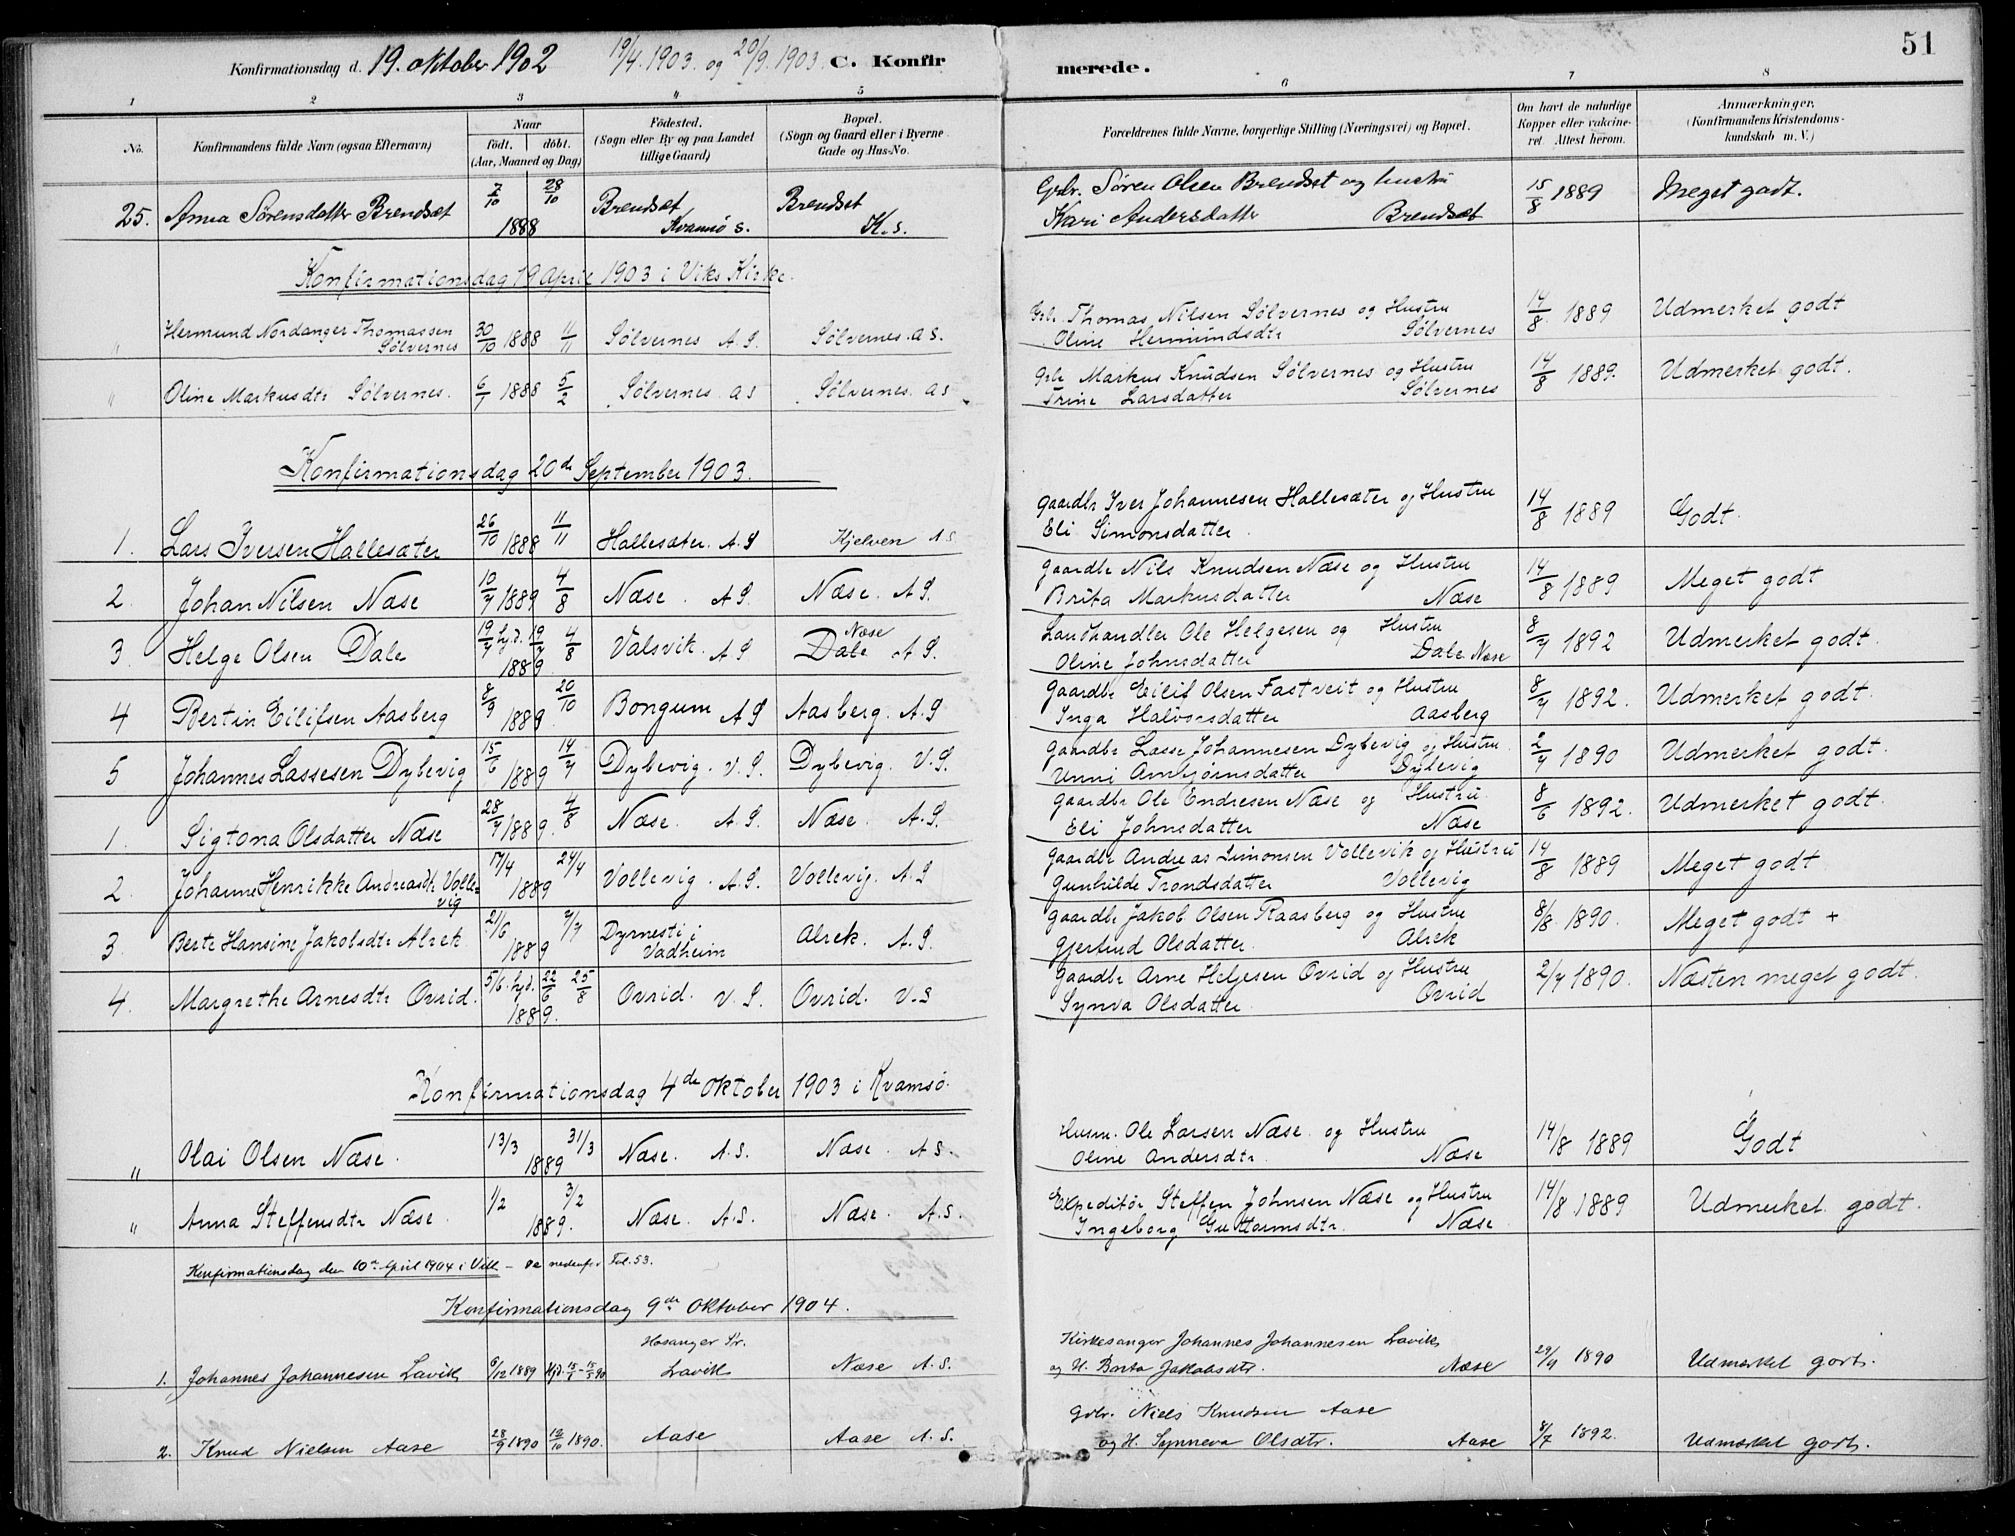 51
Konfirmationsdag d. 19. oktober 1902 19/4 1903 og 20/9 1903. C. Konfirmerede.
1 2 3 4 5 6 7 8
No. Konfirmandens fulde Navn (ogsaa Efternavn) Naar födt. döbt. (Aar, Maaned og Dag) Födested. (Sogn eller By og paa Landet tillige Gaard) Bopæl. (Sogn og Gaard eller i Byerne Gade og Hus-No. Forældrenes fulde Navne, borgerlige Stilling (Næringsvei) og Bopæl. Om havt de naturlige Kopper eller vakcineret. Attest herom. Anmærkninger. (Konfirmandens Kristendomskundskab m. V.)
25. Anna Sørensdatter Brendsæt 7/10 28/10 1888 Brendsæt Kvamsö s. Brendsæt K. s. Gbr. Søren Olsen Brendsæt og hustru Kari Andersdatter Brendsæt 15/8 1889 Meget godt.
Konfirmationsdag 19 April 1903 i Viks Kirke.
" Hermund Nordanger Thomassen Sølvernes 30/10 1888 11/11 Sølvernes A. S. Sølvernes. A S. Gbr. Thomas Nilsen Sølvernes og Hustru Oline Hermundsdtr Sølvernes 14/8 1889 Udmerket godt
" Oline Markusdtr Sølvernes. 6/7 1888 5/2 Sølvernes. A S Sølvernes. A S Gbr Markus Knudsen Sølvernes og Hustru Trine Larsdatter Sølvernes 14/8 1889. Udmerket godt.
Konfirmationsdag 20de September 1903.
1. Lars Iversen Hallesæter 26/10 1888 11/11 Hallesæter. A. S Kjelven A S. Gaardbr Iver Johannesen Hallesæter og Hustru Eli Simonsdatter. 14/8 1889 Godt.
2. Johan Nilsen Næse 10/7 1889 4/8 Næse. A S. Næse. A S. Gaardbr Nils Knudsen Næse og Hustru Brita Markusdatter Næse 14/8 1889 Meget godt
3. Helge Olsen Dale 19/7 hjd. 19/7 4/8 1889. Valsvik. A S Næse Dale A S. Landhandler Ole Helgesen og Hustru Oline Johnsdatter Dale Næse 8/7 1892 Udmerket godt.
4 Bertin Eilifsen Aasberg 8/9 20/10 1889. Bongum A S Aasberg. A. S Gaardbr Eilif Olsen Fastveit og Hustru Inga Halvorsdatter Aasberg 8/7 1892. Udmerket godt.
5 Johannes Lassesen Dybevig 15/6 14/7 1889 Dybevig. V. S. Dybevig. V. S. Gaardbr Lasse Johannesen Dybevig og Hustru. Unni Ambjørnsdatter Dybevig 2/7 1890 Udmerket godt.
1. Sigtona Olsdatter Næse 28/7 1889. 4/8 Næse. A. S. Næse. A. S. Gaardbr Ole Endresen Næse og Hustru. Eli Johnsdatter Næse 8/6 1892. Udmerket godt.
2. Johanne Henrikke Andreasdtr Vollevig 17/4 24/4 1889 Vollevig. A. S. Vollevig. A. S Gaardbr Andreas Simonsen Vollevik og Hustru Gunhilde Trondsdatter Vollevig 14/8 1889 Meget godt
3. Berte Hansine Jakobsdtr Alrek. 21/6 7/7 1889 Dyrnesti i Vadheim Alrek. A. S. Gaardbr Jakob Olsen Raasberg og Hustru Gjertrud Olsdatter. Alrek 8/8. 1890. Meget godt +
4. Margrethe Arnesdtr Ovrid. 5/6. hjd. 22/6 25/8 1889. Ovrid. V. S. Ovrid. V. S Gaardbr Arne Helgesen Ovrid og Hustru Synva Olsdatter. Ovrid 2/7 1890. Næsten meget godt.
Konfirmationsdag 4de oktober 1903 i Kvamsö.
" Olai Olsen Næse. 13/3 31/3 1889 Næse. A. S. Næse. A S. Husm. Ole Larsen Næse. og Hustru Oline Andersdtr. Næse 14/8 1889 Godt
" Anna Steffensdtr Næse. 1/2 3/2 1889. Næse. A. S. Næse. A. S. Expeditör Steffen Johnsen Næse og Hustru Ingeborg Guttormsdtr. Næse 14/8 1889 Udmerket godt.
Konfirmationsdag den 10de April 1904 i Vik - se nedenfor Fol. 53.
Konfirmationsdag 9de Oktober 1904.
1. Johannes Johannesen Lavik 6/12 1889 Hjd. 15/5 90 Hosanger Pr. Lavik Næse A. S. Kirkesanger Johannes Johannesen Lavik og H. Berta Jakobsdtr. Næse 29/9 1890 Udmerket godt.
2. Knud Nielsen Aase 28/9 1890 12/10 1890. Aase Aase A. S. Gbr. Niels Knudsen Aase og H. Synneva Olsdtr. Aase 8/7 1892. Udmerket godt.